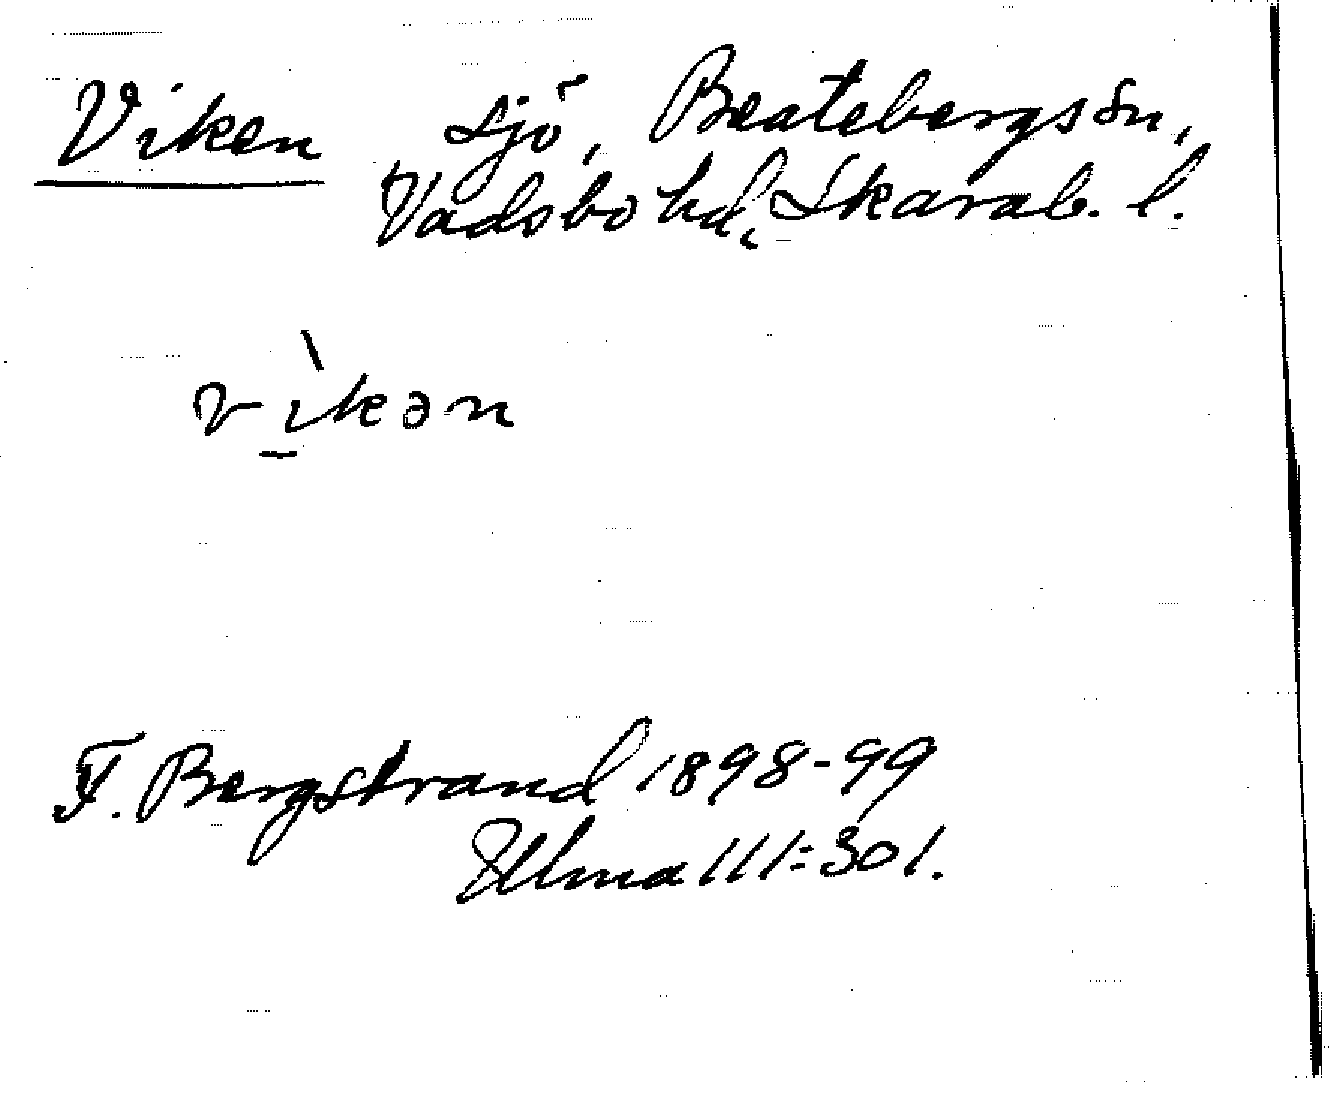 Viken sjö, Beatebergs sn,
Vadsbo hd, Skarab. l.
vı̱̀kən
F. Bergstrand 1898-99
Ulma 111:301.